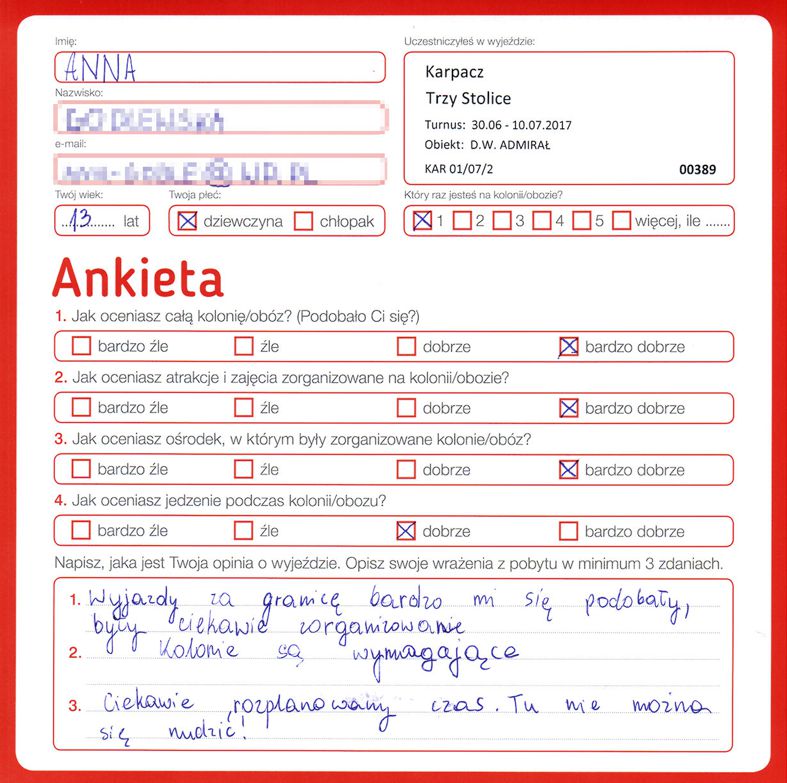 Imię:
ANNA
Uczestniczyłeś w wyjeździe:
Karpacz
Trzy Stolice
Turnus: 30.06 - 10.07.2017
Obiekt: D.W. ADMIRAŁ
KAR 01/07/2 00389
Nazwisko:
e-mail:
Twój wiek: Twoja płeć: Który raz jesteś na kolonii/obozie?
...13....... lat dziewczyna chłopak 1 2 3 4 5 więcej, ile .......
Ankieta
1. Jak oceniasz całą kolonię/obóz? (Podobało Ci się?)
bardzo źle źle dobrze bardzo dobrze
2. Jak oceniasz atrakcje i zajęcia zorganizowane na kolonii/obozie?
bardzo źle źle dobrze bardzo dobrze
3. Jak oceniasz ośrodek, w którym były zorganizowane kolonie/obóz?
bardzo źle źle dobrze bardzo dobrze
4. Jak oceniasz jedzenie podczas kolonii/obozu?
bardzo źle źle dobrze bardzo dobrze
Napisz, jaka jest Twoja opinia o wyjeździe. Opisz swoje wrażenia z pobytu w minimum 3 zdaniach.
1. Wyjazdy za granicę bardzo mi się podobały,
były ciekawie zorganizowanie
2. Kolonie są wymagające
3. Ciekawie rozplanowany czas. Tu nie można
się nudzić!